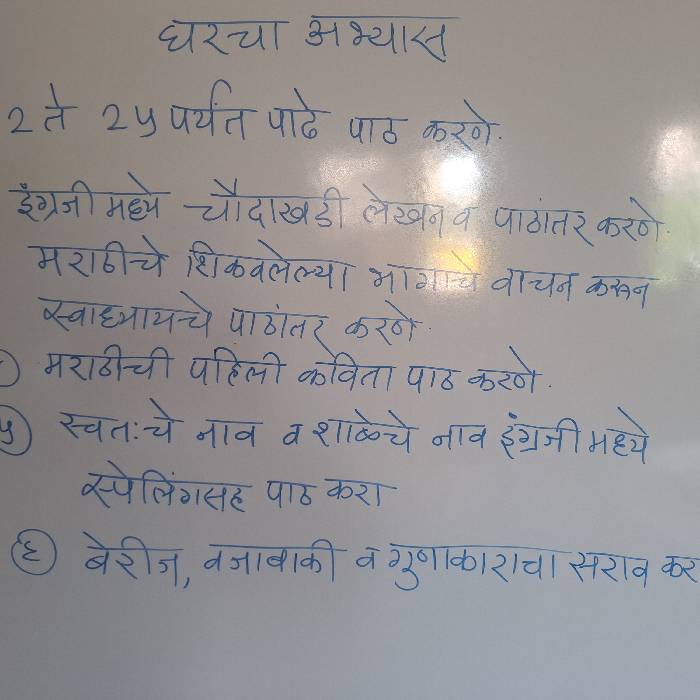 घरचा अभ्यास
2 ते 2५ पर्यंत पाढे पाठ करणे.
इंग्रजी मध्ये चौदाखडी लेखन व पाठांतर करणे.
मराठीचे शिकवलेल्या भागाचे वाचन करून
स्वाध्यायचे पाठांतर करणे.
मराठीची पहिली कविता पाठ करणे.
५ स्वतःचे नाव व शाळेचे नाव इंग्रजी मध्ये
स्पेलिंगसह पाठ करा
६ बेरीज, वजाबाकी व गुणाकाराचा सराव कर